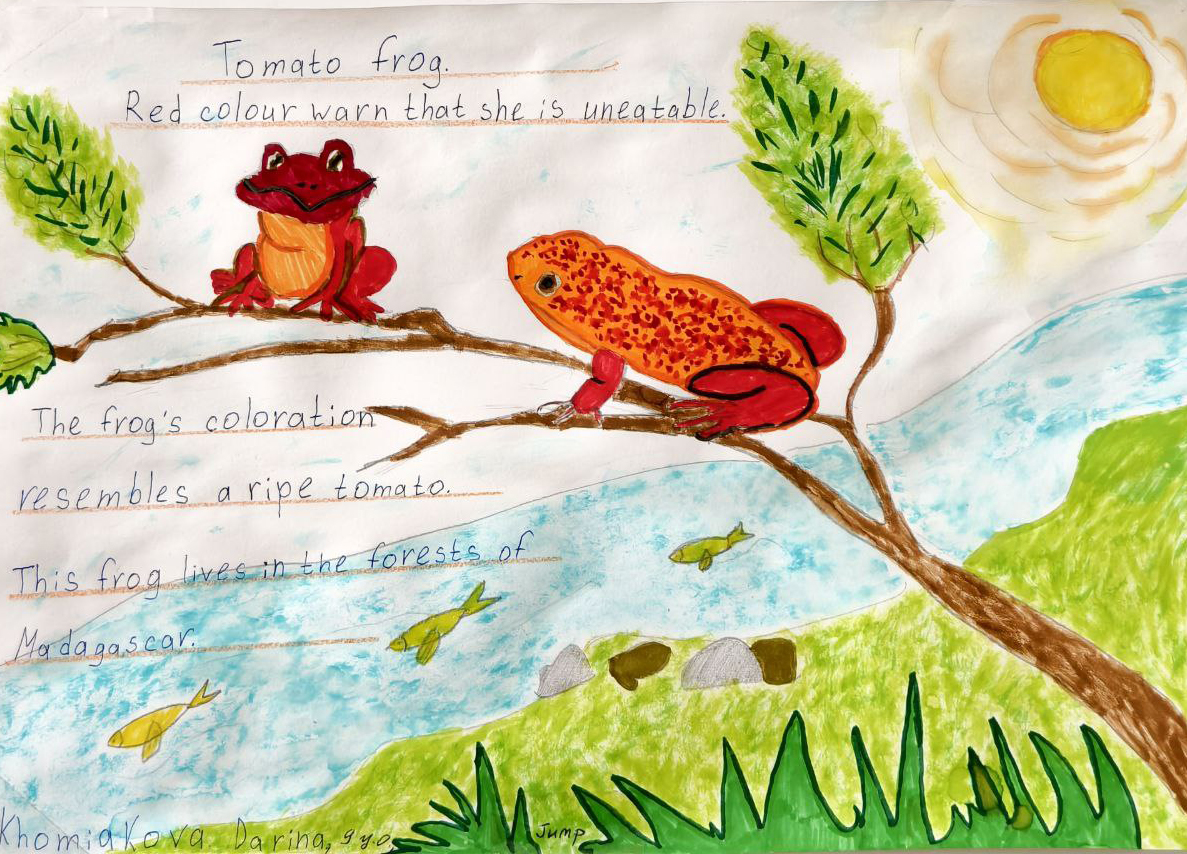 Tomato frog.
Red colour warn that she is uneatable.
The frog's coloration
resembles a ripe tomato.
This frog lives in the forests of
Madagascar.
Khomiakova Darina, 9 y.o.
Jump